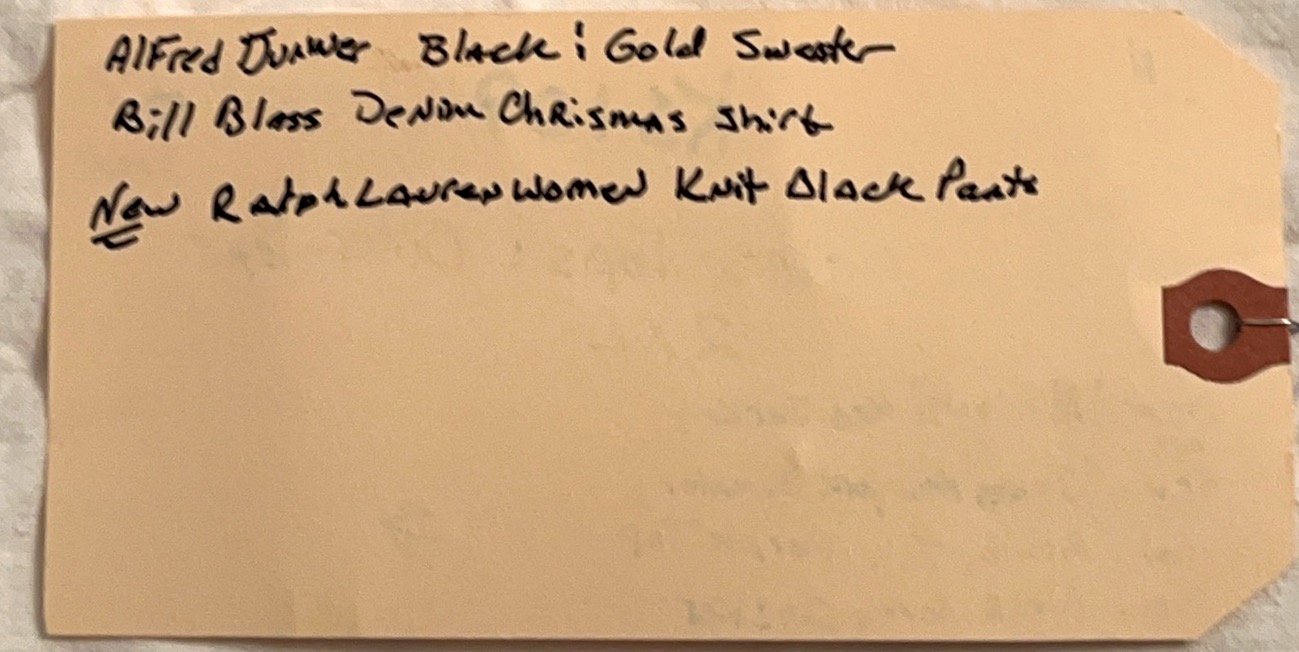 Alfred Dunner Black & Gold Sweater
Bill Blass Denim Chrismas Shirt
New Ralph Lauren Women Knit Black Pants